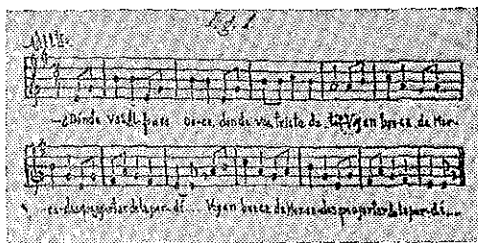 Fig. 1
—¿Dónde vas Alfonso Doce, donde vas triste de ti? Voy en busca de Mer-
ce-des que ayer tarde la perdí... Voy en busca de Merce-des que ayer tarde la perdí...